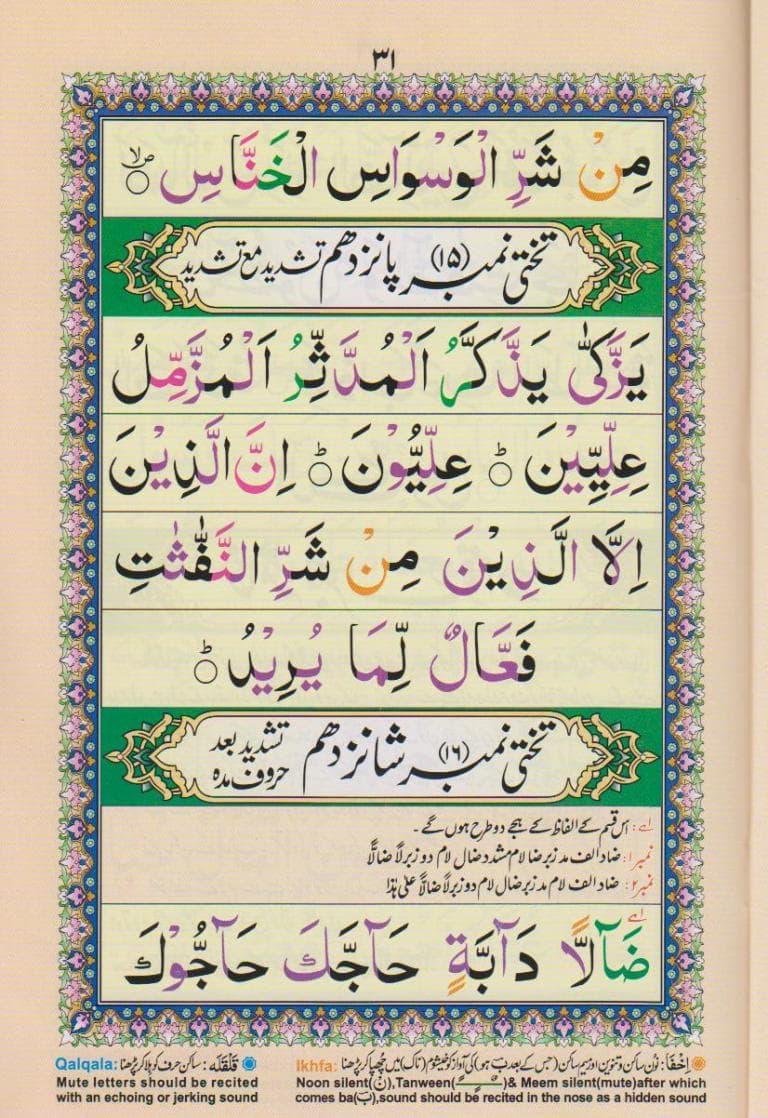 ۳۱
مِنْ شَرِّ الْوَسْوَاسِ الْخَنَّاسِ ۙ○
تختی نمبر (۱۵) پانزدھم تشدید مع تشدید
يَزَّكّٰى يَذَّكَّرُ اَلْمُدَّثِّرُ اَلْمُزَّمِّلُ
عِلِّيِّيْنَ ؕ○ عِلِّيُّوْنَ ؕ○ اِنَّ الَّذِيْنَ
اِلَّا الَّذِيْنَ مِنْ شَرِّ النَّفّٰثٰتِ
فَعَّالٌ لِّمَا يُرِيْدُ ؕ○
تختی نمبر (۱۶) شانزدھم تشدید بعد حروف مدہ
اے: اس قسم کے الفاظ کے ہجے دو طرح ہوں گے۔
نمبر۱: ضاد الف مد زبر ضا لام مشدد ضال لام دو زبر لاً ضالاًّ
نمبر۲: ضاد الف لام مد زبر ضال لام دو زبر لاً ضالاً علیٰ ہٰذا
اے
ضَآلًّا دَآبَّةٍ حَآجَّكَ حَآجُّوْكَ
اِخْفَا: نون ساکن و تنوین اور میم ساکن (جس کے بعد ب ہو) کی آواز کو خیشوم (ناک) میں چھپا کر پڑھنا Ikhfa:
Noon silent(نْ),Tanween(ـًـٍـٌ)& Meem silent(mute)after which
comes ba(ب),sound should be recited in the nose as a hidden sound
قَلْقَلَہ: ساکن حرف کو ہلا کر پڑھنا Qalqala:
Mute letters should be recited
with an echoing or jerking sound